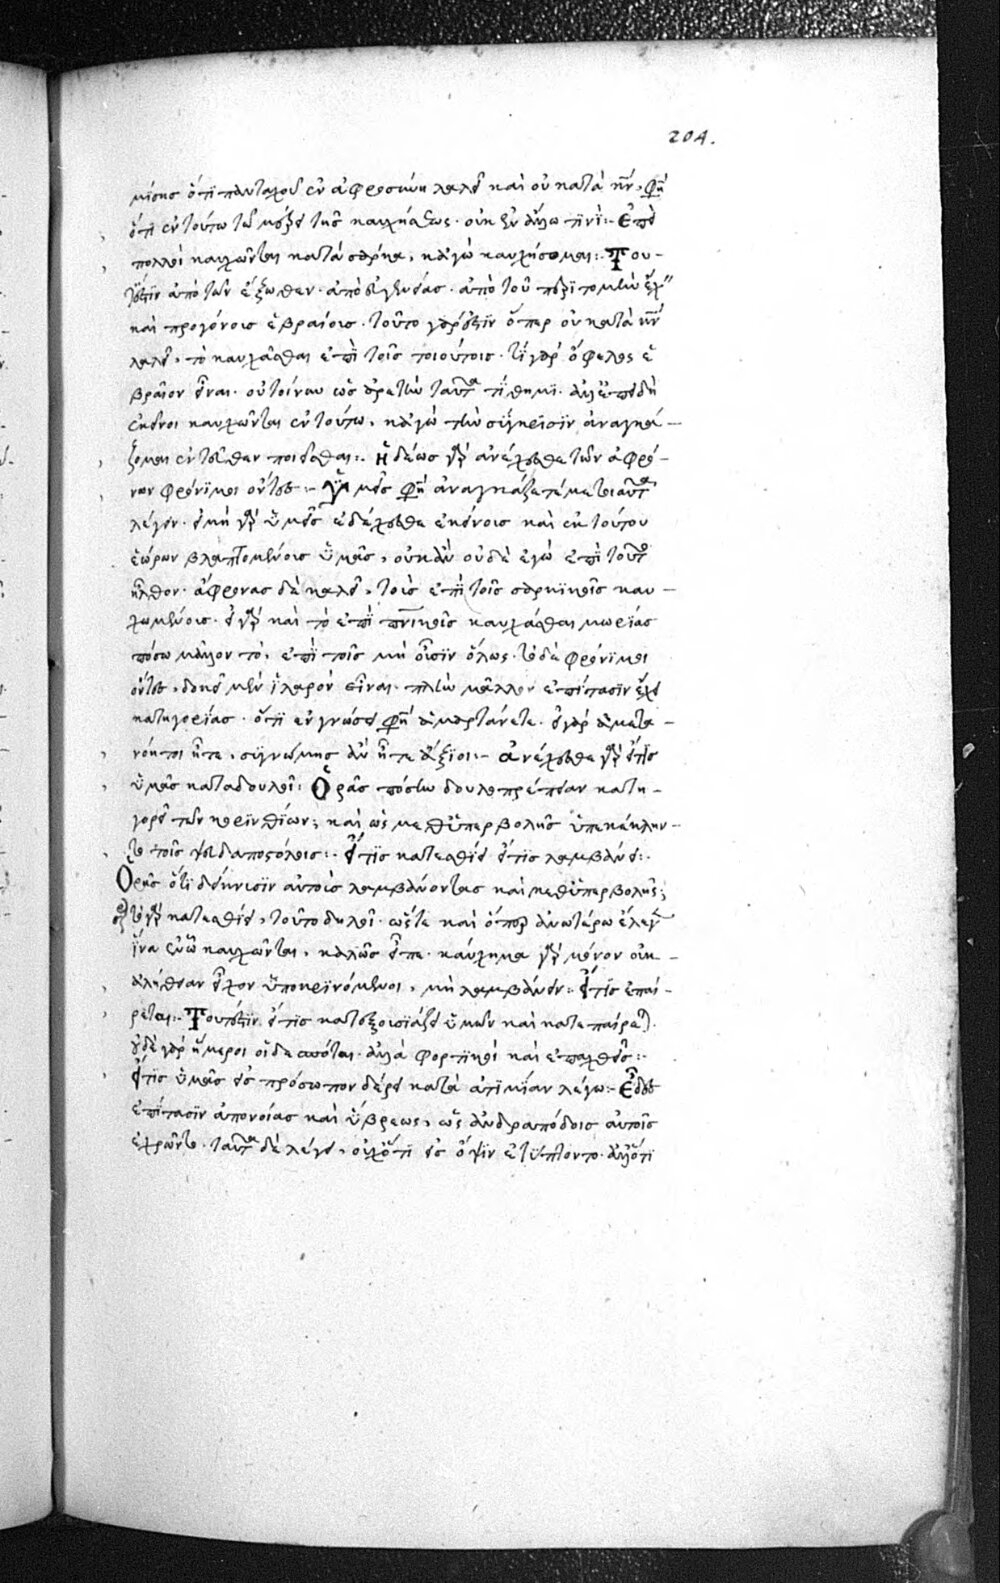 204.
μίσης ὅτι πανταχοῦ ἐν ἀφροσύνη λαλεῖ καὶ οὐ κατὰ κν, φη
ὅτι ἐν τούτω τῶ μέρει τῆς καυχήσεως. οὐκ ἐν ἄλλω τινί:- Ἐπεὶ
πολλοὶ καυχῶνται κατὰ σάρκα, κἀγὼ καυχήσομαι:. Του-
τέστιν ἀπὸ τῶν ἔξωθεν. ἀπὸ εὐγενείας. ἀπὸ τοῦ περιτομὴν ἔχειν
καὶ προγόνοις ἑβραίοις. τοῦτο γάρ ἐστιν ὅπερ οὐ κατὰ κν
λαλεῖ, τὸ καυχᾶσθαι ἐπὶ τοῖς τοιούτοις. τί γὰρ ὄφελος ἑ
βραῖον εἶναι. οὐ τοίνυν ὡς ἀρετὴν ταῦτα τίθημι. ἀλλ' ἐπειδὴ
ἐκεῖνοι καυχῶνται ἐν τούτω, κἀγὼ τὴν σύγκρισιν ἀναγκά-
ζομαι ἐντεῦθεν ποιεῖσθαι:. ἡδέως γὰρ ἀνέχεσθε τῶν ἀφρό-
νων φρόνιμοι ὄντες:- Ὑμεῖς φη ἀναγκάζετέ με τοιαῦτα
λέγειν. εἰ μὴ γὰρ ὑμεῖς ἐδέχεσθε ἐκείνοις καὶ ἐκ τούτου
ἑώρων βλαπτομένους ὑμᾶς, οὐκ ἂν οὐδὲ ἐγὼ ἐπὶ τοῦτο
ἦλθον. ἄφρονας δὲ καλεῖ, τοὺς ἐπὶ τοῖς σαρκικοῖς καυ-
χωμένοις. εἰ γὰρ καὶ τὸ ἐπὶ πνικοῖς καυχᾶσθαι μωρίας
πόσω μᾶλλον τὸ, ἐπὶ τοῖς μὴ οὖσιν ὅλως. τὸ δὲ φρόνιμοι
ὄντες, δοκεῖ μὲν ἱλαρὸν εἶναι. πλὴν μᾶλλον ἐπίτασιν ἔχει
κατηγορίας. ὅτι ἐν γνώσει φη ἁμαρτάνετε. εἰ γὰρ ἀμετα-
νόητοι ἦτε, συγνώμης ἂν ἦτε ἄξιοι:- ἀνέχεσθε γὰρ εἴτις
ὑμᾶς καταδουλοῖ: Ὁρᾶς πόσην δουλοπρέπειαν κατη-
γορεῖ τῶν κορινθίων; καὶ ὡς μεθ' ὑπερβολῆς ὑπεκέκλιν-
το τοῖς ψευδαποστόλοις:. εἴτις κατεσθίει εἴτις λαμβάνει:.
Ὁρᾶς ὅτι δείκνυσιν αὐτοὺς λαμβάνοντας καὶ μεθ' ὑπερβολῆς;
τὸ γὰρ κατεσθίει, τοῦτο δηλοῖ. ὥστε καὶ ὅπερ ἀνωτέρω ἔλεγεν
ἵνα ἐν ὧ καυχῶνται, καλῶς εἶπε. καύχημα γὰρ μόνον οὐκ-
ἀλήθειαν εἶχον ὑποκρινόμενοι, μὴ λαμβάνειν: εἴτις ἐπαί-
ρεται:- Τουτέστιν εἴτις κατεξουσιάζει ὑμῶν καὶ κατεπαίρεται.
οὐδὲ γὰρ ἥμεροι οἱ δεσπόται. ἀλλὰ φορτικοὶ καὶ ἐπαχθεῖς:.
εἴτις ὑμᾶς εἰς πρόσωπον δέρει κατὰ ἀτιμίαν λέγω:- Εἶδες
ἐπίτασιν ἀπονοίας καὶ ὕβρεως, ὡς ἀνδραπόδοις αὐτοῖς
ἐχρῶντο. ταῦτα δὲ λέγει, οὐχ ὅτι εἰς ὄψιν ἐτύπτοντο. ἀλλ' ὅτι